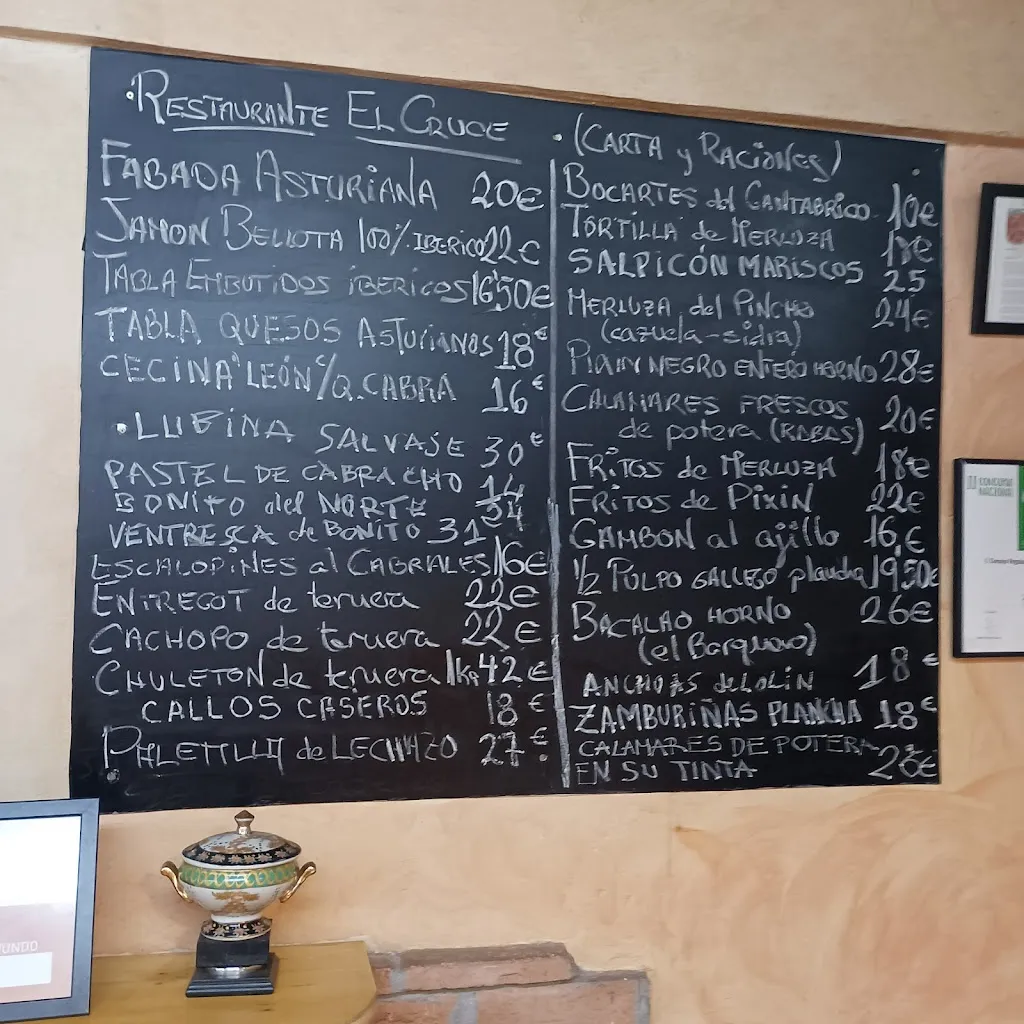 RESTAURANTE EL CRUCE
FABADA ASTURIANA 20€
JAMON BELLOTA 100% IBERICO 22€
TABLA EMBUTIDOS IBERICOS 16'50€
TABLA QUESOS ASTURIANOS 18€
CECINA LEÓN C/Q. CABRA 16€
LUBINA SALVAJE 30€
PASTEL DE CABRACHO 14
BONITO del NORTE
VENTRESCA de BONITO 31€
ESCALOPINES al CABRALES 16€
ENTRECOT de ternera 22€
CACHOPO de ternera 22€
CHULETON de ternera 1kg 42€
CALLOS CASEROS 18€
PALETILLA de LECHAZO 27€
(CARTA y RACIONES)
BOCARTES del CANTABRICO 10€
TORTILLA de MERLUZA 18€
SALPICÓN MARISCOS 25
MERLUZA del PINCHO 24€
(cazuela-sidra)
PIXIN NEGRO ENTERO HORNO 28€
CALAMARES FRESCOS 20€
de potera (RABAS)
FRITOS de MERLUZA 18€
FRITOS de PIXIN 22€
GAMBON al ajillo 16€
1/2 PULPO GALLEGO plancha 19,50€
BACALAO HORNO 26€
(el Barquero)
ANCHOAS de LOLIN 18€
ZAMBURIÑAS PLANCHA 18€
CALAMARES DE POTERA
EN SU TINTA 26€
UNDO